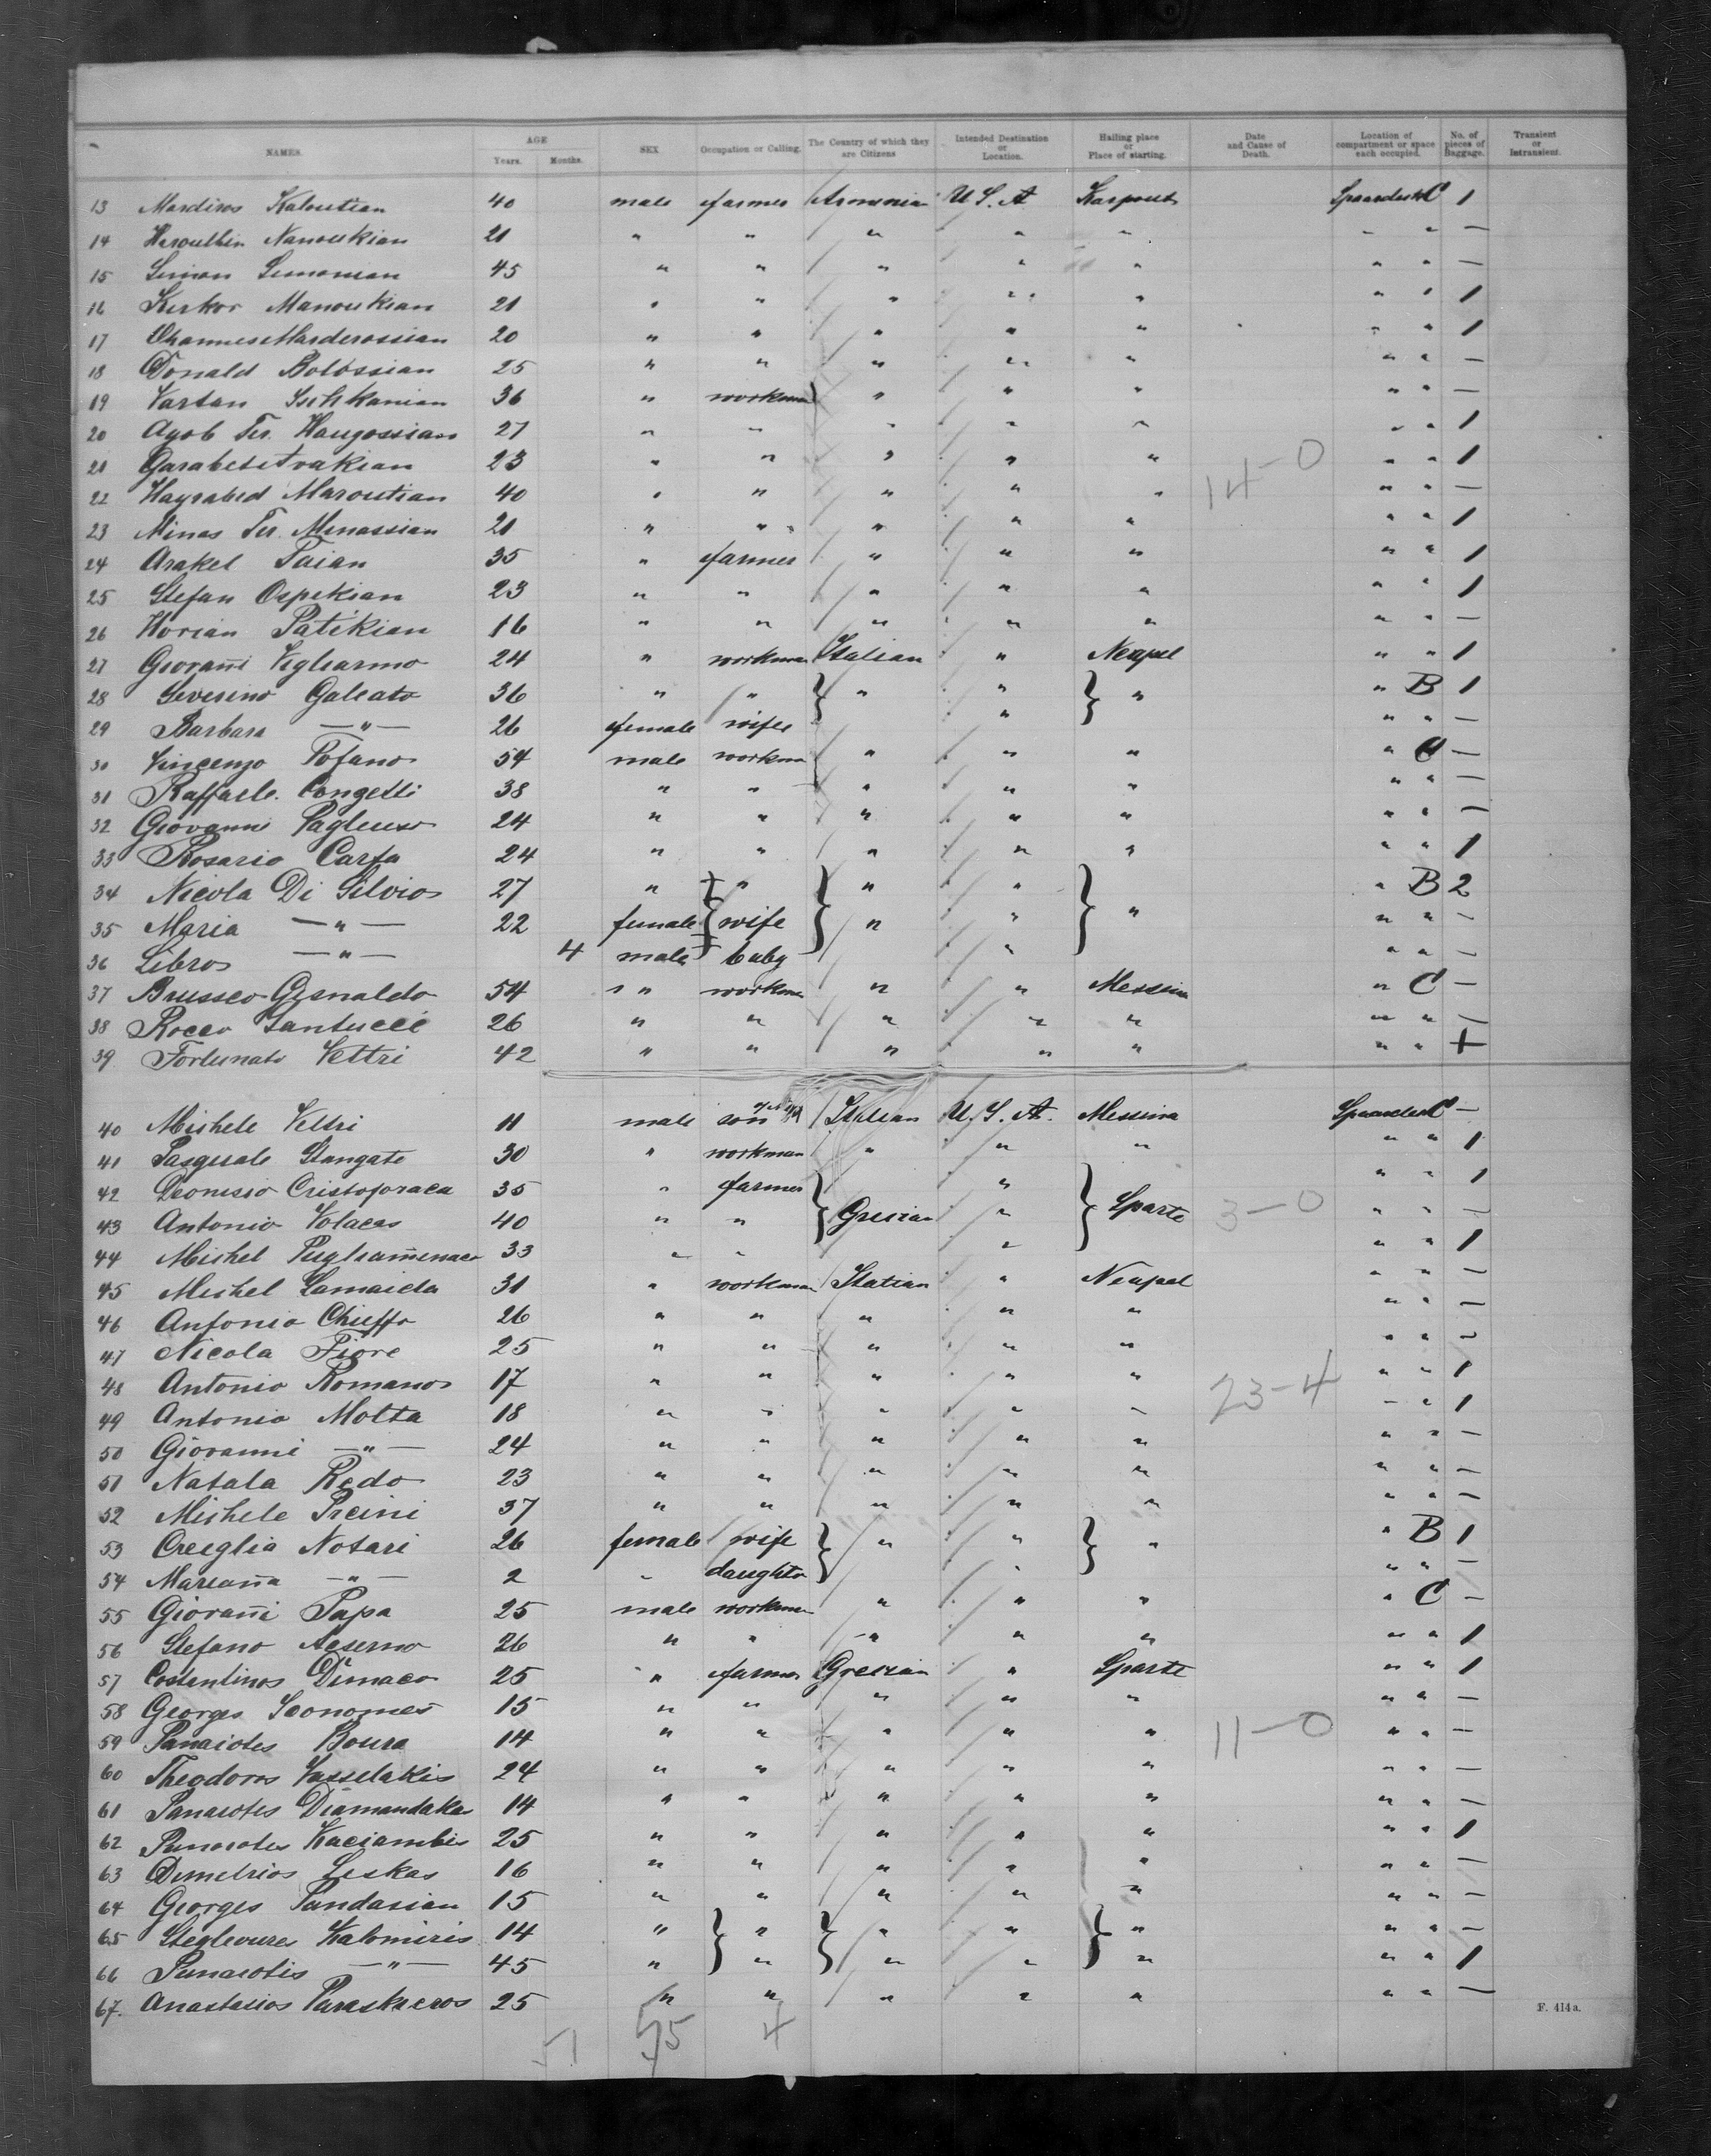 NAMES. AGE Years. Months. SEX Occupation or Calling. The Country of which they are Citizens Intended Destination or Location. Hailing place or Place of starting. Date and Cause of Death. Location of compartment or space each occupied. No. of pieces of Baggage. Transient or Intransient.
13 Mardiros Kaloutian 40 male farmer Armenia U.S.A. Karpout C 1
14 Nanoukian 21 " " " " " " " —
15 Simon Simonian 45 " " " " " " " —
16 Kirkor Manoukian 21 " " " " " " " 1
17 Ohannes Marderossian 20 " " " " " " " 1
18 Donald Bolossian 25 " " " " " " " —
19 Vartan 36 " workman " " " " " —
20 Agob Ter. Haugossian 27 " " " " " " " 1
21 Garabet 23 " " " " " " " 1
14-0
22 Hayrabed Maroutian 40 " " " " " " " —
23 Minas Ter. Minassian 21 " " " " " " " 1
24 Arakel Paian 35 " farmer " " " " " 1
25 Stefan Ospekian 23 " " " " " " " 1
26 Horian Patikian 16 " " " " " " " —
27 Giovanni Vigliarmo 24 " workman Italian " Neapel " " 1
28 Severino Galeato 36 " " " " " " B 1
29 Barbara —"— 26 female wife " " " —
30 Vincenzo Pofano 54 male workman " " " " C —
31 Raffaele Congetti 38 " " " " " " " —
32 Giovanni 24 " " " " " " " —
33 Rosario Carfa 24 " " " " " " " 1
34 Nicola Di Silvio 27 " " " " " B 2
35 Maria —"— 22 female wife " " " " " —
36 Libros —"— 4 male baby " " " —
37 Brusseo Gesnaldo 54 " workman " " Messina " C —
38 Rocco Santucci 26 " " " " " " " —
39 Fortunato Veltri 42 " " " " " " " +
40 Michele Veltri 11 male son Italian U.S.A. Messina C —
41 Pasquale Stangate 30 " workman " " " " " 1
42 Dionisio Cristoporaca 35 " farmer " " " 1
43 Antonio Volacas 40 " " Grecian " Sparte " " —
3-0
44 Michel 33 " " " " " 1
45 Michel Lamaida 31 " workman Italian " Neapel " " —
46 Antonio Chieffo 26 " " " " " " " —
47 Nicola Fiore 25 " " " " " " " —
48 Antonio Romano 17 " " " " " " " 1
23-4
49 Antonio Motta 18 " " " " " " " 1
50 Giovanni —"— 24 " " " " " " " —
51 Natala Redo 23 " " " " " " " —
52 Michele Preini 37 " " " " " " " —
53 Notari 26 female wife " " " " B 1
54 Marianna —"— 2 " daughter " " " —
55 Giovanni Papa 25 male workman " " " " C —
56 Stefano Aeserno 26 " " " " " " " 1
57 Costantinos Dimaco 25 " farmer Grecian " Sparte " " 1
58 Georges 15 " " " " " " " —
59 Panaiotes Boura 14 " " " " " " " —
11-0
60 Theodoros Vasselakis 24 " " " " " " " —
61 Panaiotes Diamandakas 14 " " " " " " " —
62 Panaiotes Kaciambis 25 " " " " " " " 1
63 Demetrios Leskas 16 " " " " " " " —
64 Georges Pandasian 15 " " " " " " " —
65 Kalomiris 14 " " " " " " " —
66 Panaiotis —"— 45 " " " " " " " 1
67. Anastasios 25 " " " " " " " —
F. 414a.
51 4